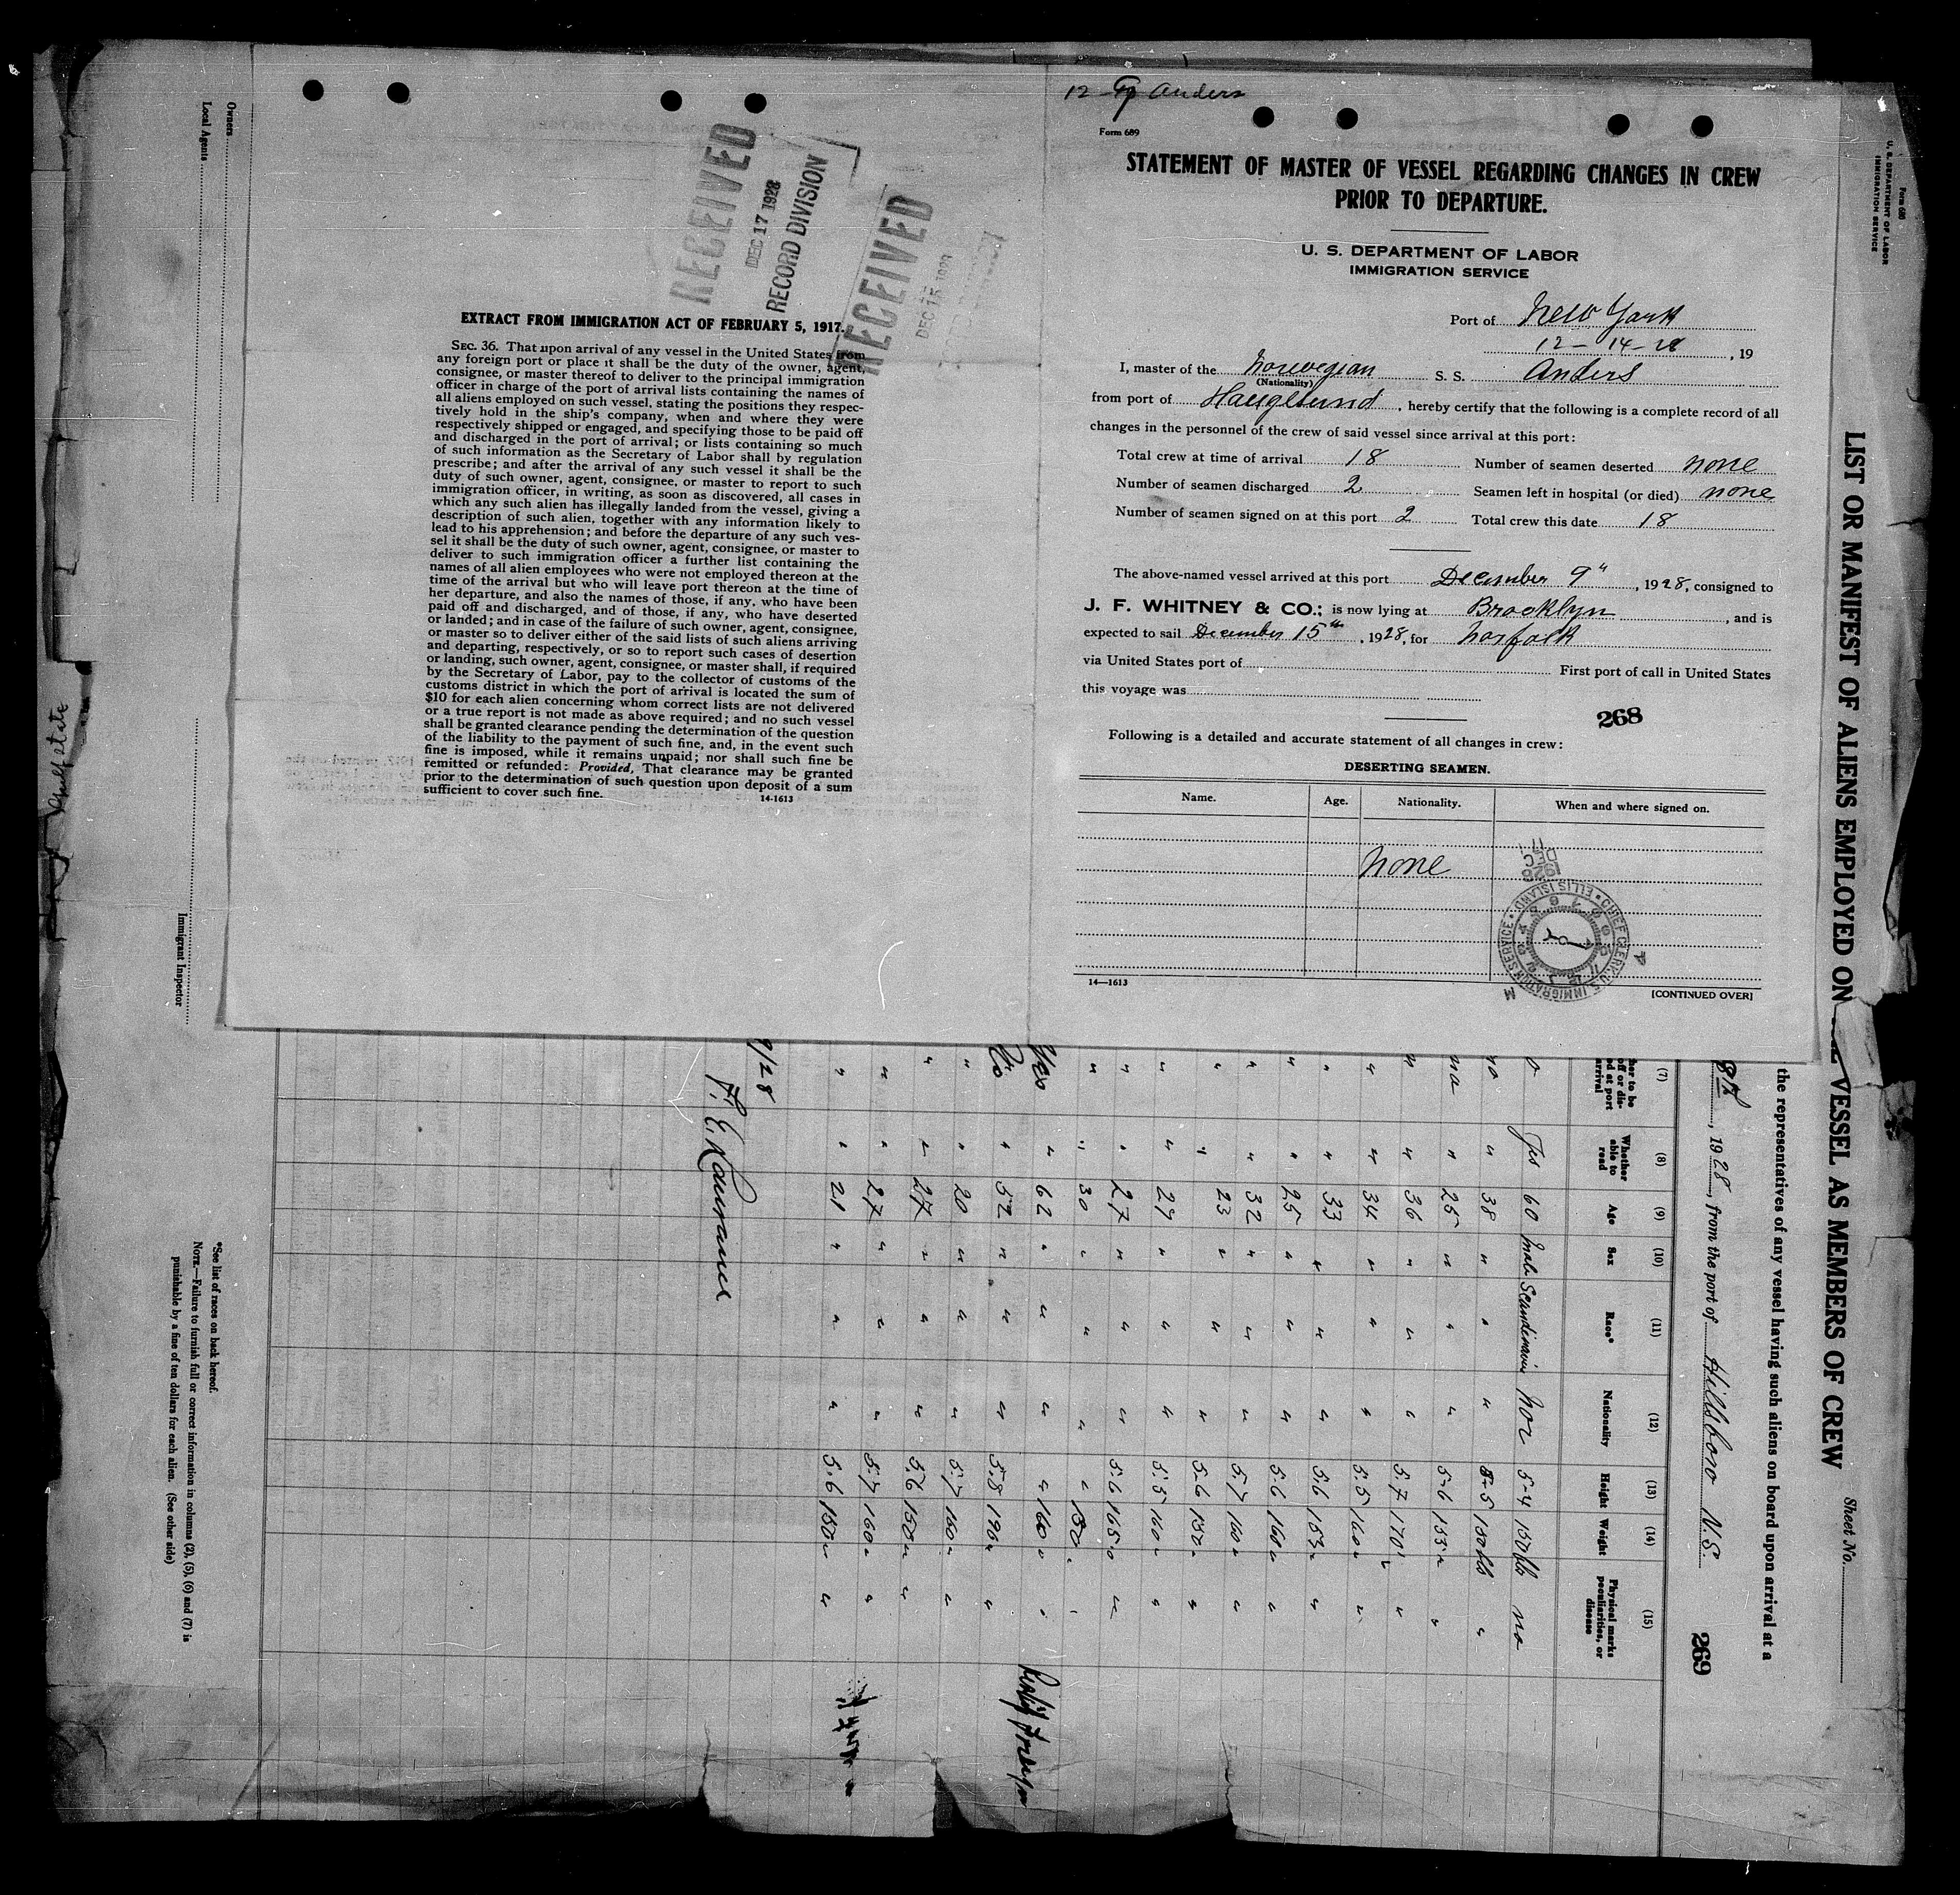 12 Anders
Form 689
STATEMENT OF MASTER OF VESSEL REGARDING CHANGES IN CREW
PRIOR TO DEPARTURE.
U. S. DEPARTMENT OF LABOR
IMMIGRATION SERVICE
Port of New York
12-14-28, 19
I, master of the Norwegian S. S. Anders
(Nationality)
from port of Haugesund, hereby certify that the following is a complete record of all
changes in the personnel of the crew of said vessel since arrival at this port:
Total crew at time of arrival 18 Number of seamen deserted none
Number of seamen discharged 2 Seamen left in hospital (or died) none
Number of seamen signed on at this port 2 Total crew this date 18
The above-named vessel arrived at this port December 9", 1928, consigned to
J. F. WHITNEY & CO.; is now lying at Brooklyn, and is
expected to sail December 15th, 1928, for Norfolk
via United States port of First port of call in United States
this voyage was
268
Following is a detailed and accurate statement of all changes in crew:
DESERTING SEAMEN.
Name. Age. Nationality. When and where signed on.
None
1928
DEC 17
CHIEF CLERK U. S. IMMIGRATION SERVICE • ELLIS ISLAND •
14—1613
[CONTINUED OVER]
RECEIVED
DEC 17 1928
RECORD DIVISION
RECEIVED
DEC 15
EXTRACT FROM IMMIGRATION ACT OF FEBRUARY 5, 1917.
SEC. 36. That upon arrival of any vessel in the United States from
any foreign port or place it shall be the duty of the owner, agent,
consignee, or master thereof to deliver to the principal immigration
officer in charge of the port of arrival lists containing the names of
all aliens employed on such vessel, stating the positions they respec-
tively hold in the ship's company, when and where they were
respectively shipped or engaged, and specifying those to be paid off
and discharged in the port of arrival; or lists containing so much
of such information as the Secretary of Labor shall by regulation
prescribe; and after the arrival of any such vessel it shall be the
duty of such owner, agent, consignee, or master to report to such
immigration officer, in writing, as soon as discovered, all cases in
which any such alien has illegally landed from the vessel, giving a
description of such alien, together with any information likely to
lead to his apprehension; and before the departure of any such ves-
sel it shall be the duty of such owner, agent, consignee, or master to
deliver to such immigration officer a further list containing the
names of all alien employees who were not employed thereon at the
time of the arrival but who will leave port thereon at the time of
her departure, and also the names of those, if any, who have been
paid off and discharged, and of those, if any, who have deserted
or landed; and in case of the failure of such owner, agent, consignee,
or master so to deliver either of the said lists of such aliens arriving
and departing, respectively, or so to report such cases of desertion
or landing, such owner, agent, consignee, or master shall, if required
by the Secretary of Labor, pay to the collector of customs of the
customs district in which the port of arrival is located the sum of
$10 for each alien concerning whom correct lists are not delivered
or a true report is not made as above required; and no such vessel
shall be granted clearance pending the determination of the question
of the liability to the payment of such fine, and, in the event such
fine is imposed, while it remains unpaid; nor shall such fine be
remitted or refunded: Provided, That clearance may be granted
prior to the determination of such question upon deposit of a sum
sufficient to cover such fine.
14-1613
Form 680
U. S. DEPARTMENT OF LABOR
IMMIGRATION SERVICE
LIST OR MANIFEST OF ALIENS EMPLOYED ON VESSEL AS MEMBERS OF CREW
Sheet No.
the representatives of any vessel having such aliens on board upon arrival at a
8th, 1928, from the port of Hillsboro N.S.
269
(7) (8) (9) (10) (11) (12) (13) (14) (15)
Whether able to read Age Sex Race* Nationality Height Weight Physical marks, peculiarities, or disease
Yes 60 Male Scandinavian Nor 5-4 150 lbs no
no " 38 " " " 5-5 180 lbs "
" 25 " " " 5-6 155 " "
" " 36 " " " 5.7 170 " "
" " 34 " " " 5.5 160 " "
" " 33 " " " 5.6 155 " "
" " 25 " " " 5.6 160 " "
" " 32 " " " 5.7 160 " "
" " 23 " " " 5-6 150 " "
" " 29 " " " 5.5 160 " "
" " 27 " " " 5.6 165 " "
" " 30 " " " " 150 " "
Yes " 62 " " " " 160 " "
No " 52 " " " 5.8 190 " "
" " 20 " " " 5.7 160 " "
" " 27 " " " 5.6 150 " "
" " 27 " " " 5.7 160 " "
" " 21 " " " 5.6 150 " "
9/28
Owners
Local Agents
Immigrant Inspector
*See list of races on back hereof.
NOTE.—Failure to furnish full or correct information in columns (2), (5), (6) and (7) is
punishable by a fine of ten dollars for each alien. (See other side)